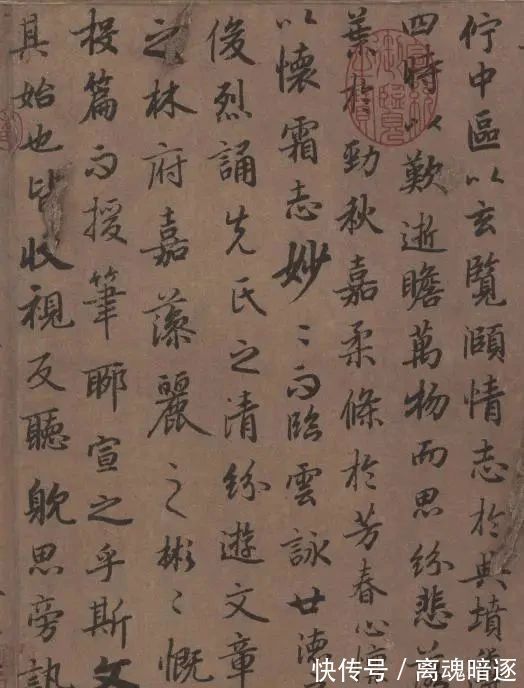 佇中區以玄覽頤情志於典墳
四時以歎逝瞻萬物而思紛悲
葉於勁秋嘉柔條於芳春心懔
以懷霜志妙〻而臨雲詠世德
俊烈誦先氏之清紛遊文章
之林府嘉藻麗之彬〻慨
投篇而援筆聊宣之乎斯文
其始也皆收視反聽躭思旁訊
快传号／离魂暗逐